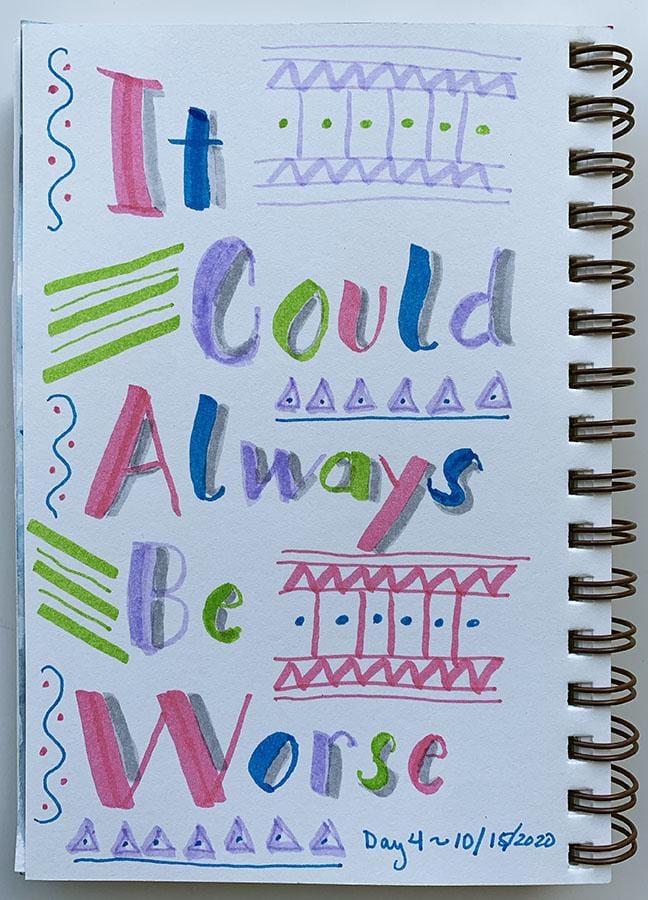 It
Could
Always
Be
Worse
Day 4 ~ 10/15/2020